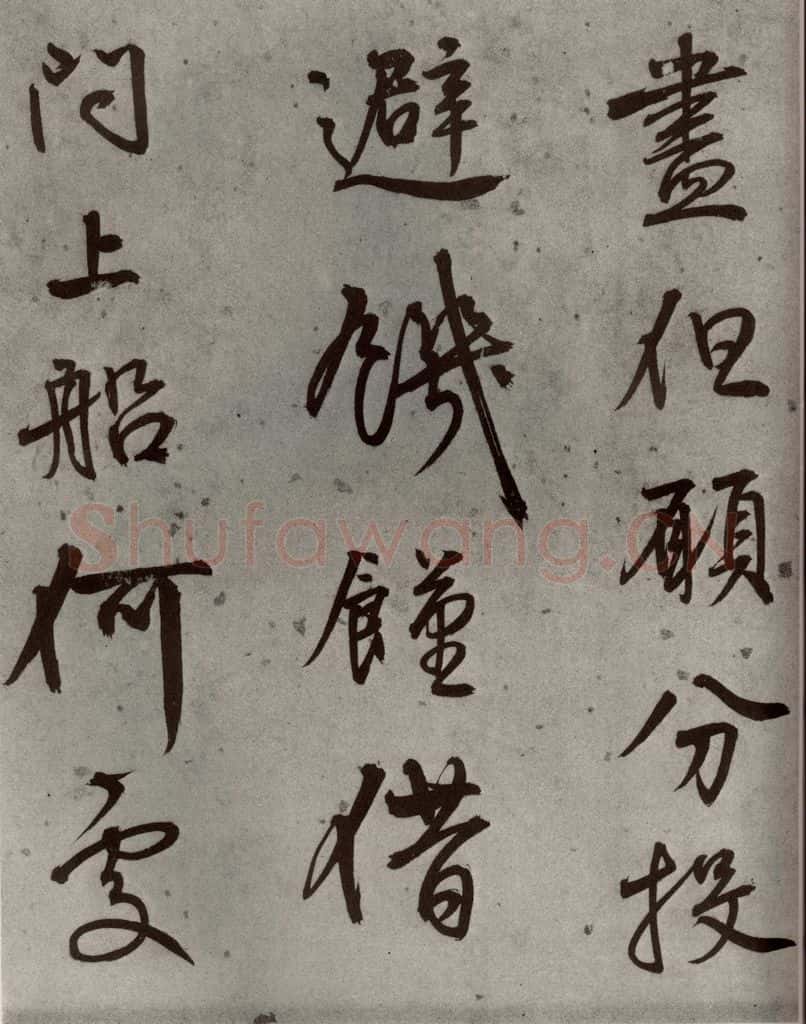 盡但願分投
避饑饉借
問上船何處
Shufawang.CN